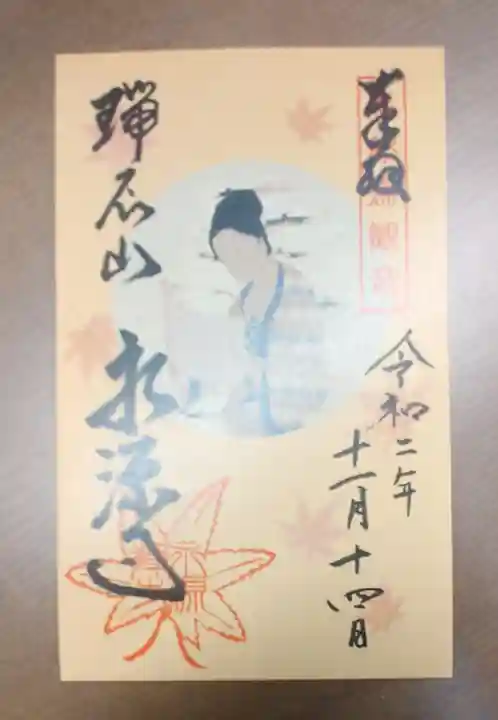 奉拝
観音
令和二年
十一月十四日
瑞石山 永源寺